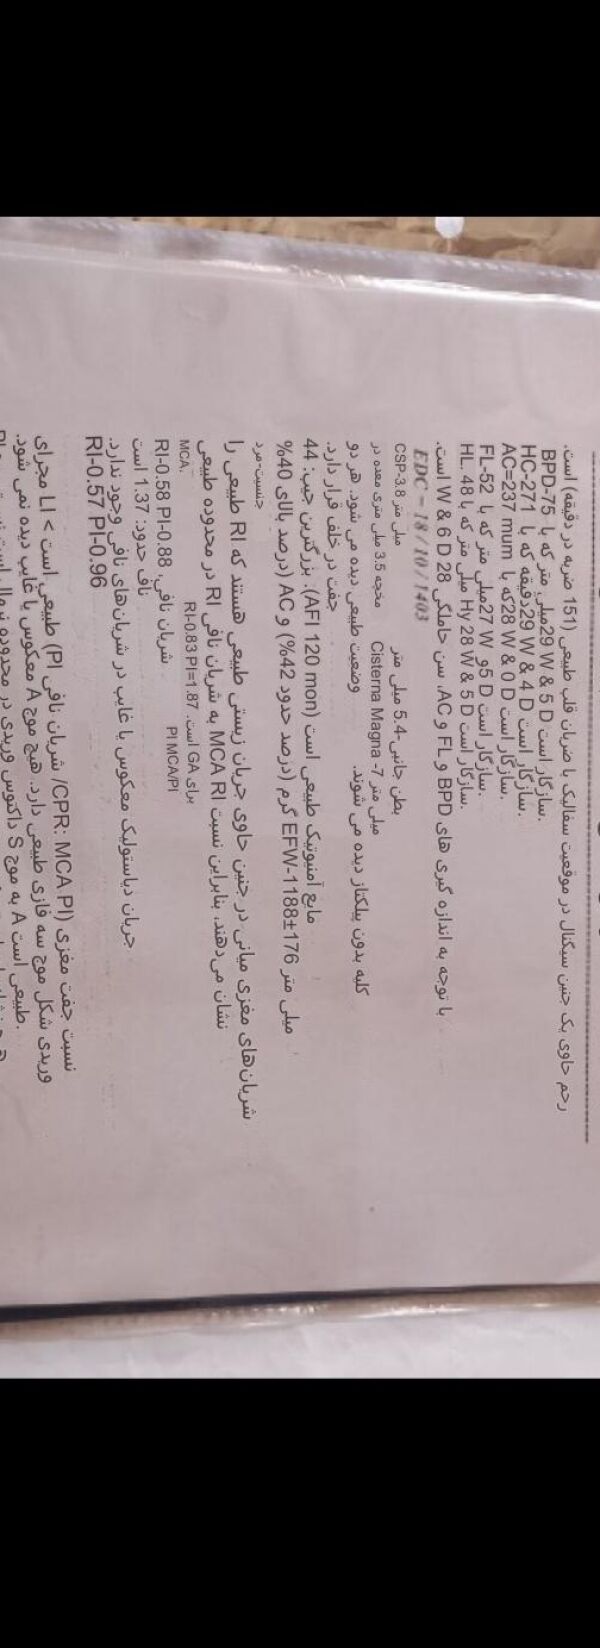 رحم حاوی یک جنین سیگنال در موقعیت سفالیک با ضربان قلب طبیعی (151 ضربه در دقیقه) است.
BPD-75 میلی متر که با 29 W & 5 D سازگار است.
HC-271 دقیقه که با 29 W & 4 D سازگار است.
AC=237 mum که با 28 W & 0 D سازگار است.
FL-52 میلی متر که با 27 W و 5 D سازگار است.
HL. 48 میلی متر که با Hy 28 W & 5 D سازگار است.
با توجه به اندازه گیری های BPD و FL و AC، سن حاملگی 28 W & 6 D است.
EDC = 18/10/1403
CSP-3.8 میلی متر بطن جانبی-5.4 میلی متر
مخچه 3.5 میلی متری معده در Cisterna Magna -7 میلی متر
وضعیت طبیعی دیده می شود. هر دو کلیه بدون پیلکتاز دیده می شوند.
جفت در خلف قرار دارد.
مایع آمنیوتیک طبیعی است (AFI 120 mon). بزرگترین جیب: 44
میلی متر EFW-1188±176 گرم (درصد حدود 42%) و AC (درصد بالای 40%
جنسیت-مرد
شریان‌های مغزی میانی در جنین حاوی جریان زیستی طبیعی هستند که RI طبیعی را
نشان می‌دهند، بنابراین نسبت MCA RI به شریان نافی RI در محدوده طبیعی
برای GA است. RI-0.83 PI=1.87
MCA. PI MCA/PI
شریان نافی. RI-0.58 PI-0.88
ناف حدود: 1.37 است
جریان دیاستولیک معکوس یا غایب در شریان‌های نافی وجود ندارد.
RI-0.57 PI-0.96
نسبت جفت مغزی (CPR: MCA PI/ شریان نافی PI) طبیعی است > LI مجرای
وریدی شکل موج سه فازی طبیعی دارد. هیچ موج A معکوس یا غایب دیده نمی شود.
طبیعی است A به موج S داکتوس وریدی در محدوده نرمال است